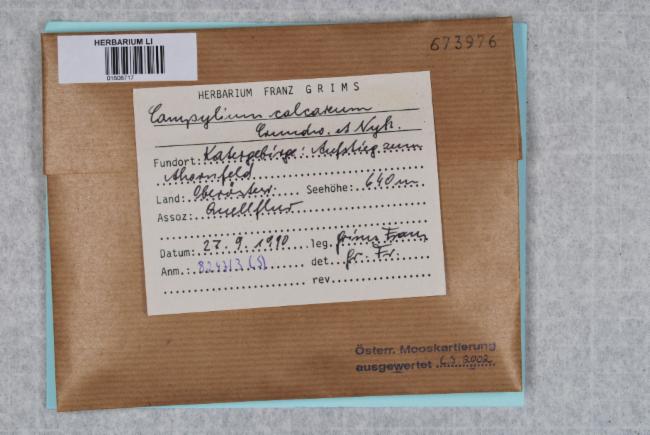 HERBARIUM LI
01606717
673976
HERBARIUM FRANZ GRIMS
Campylium calcareum
Crundw. et Nyh.
Fundort: Katergebirge: Aufstieg zum
Ahornfeld
Land: Oberösterr. Seehöhe: 640 m
Assoz: Quellflur
Datum: 27.9.1990 leg. Grims Franz
Anm.: 8243/3 (S) det. Gr. Fr.
rev.
Österr. Mooskartierung
ausgewertet 2002